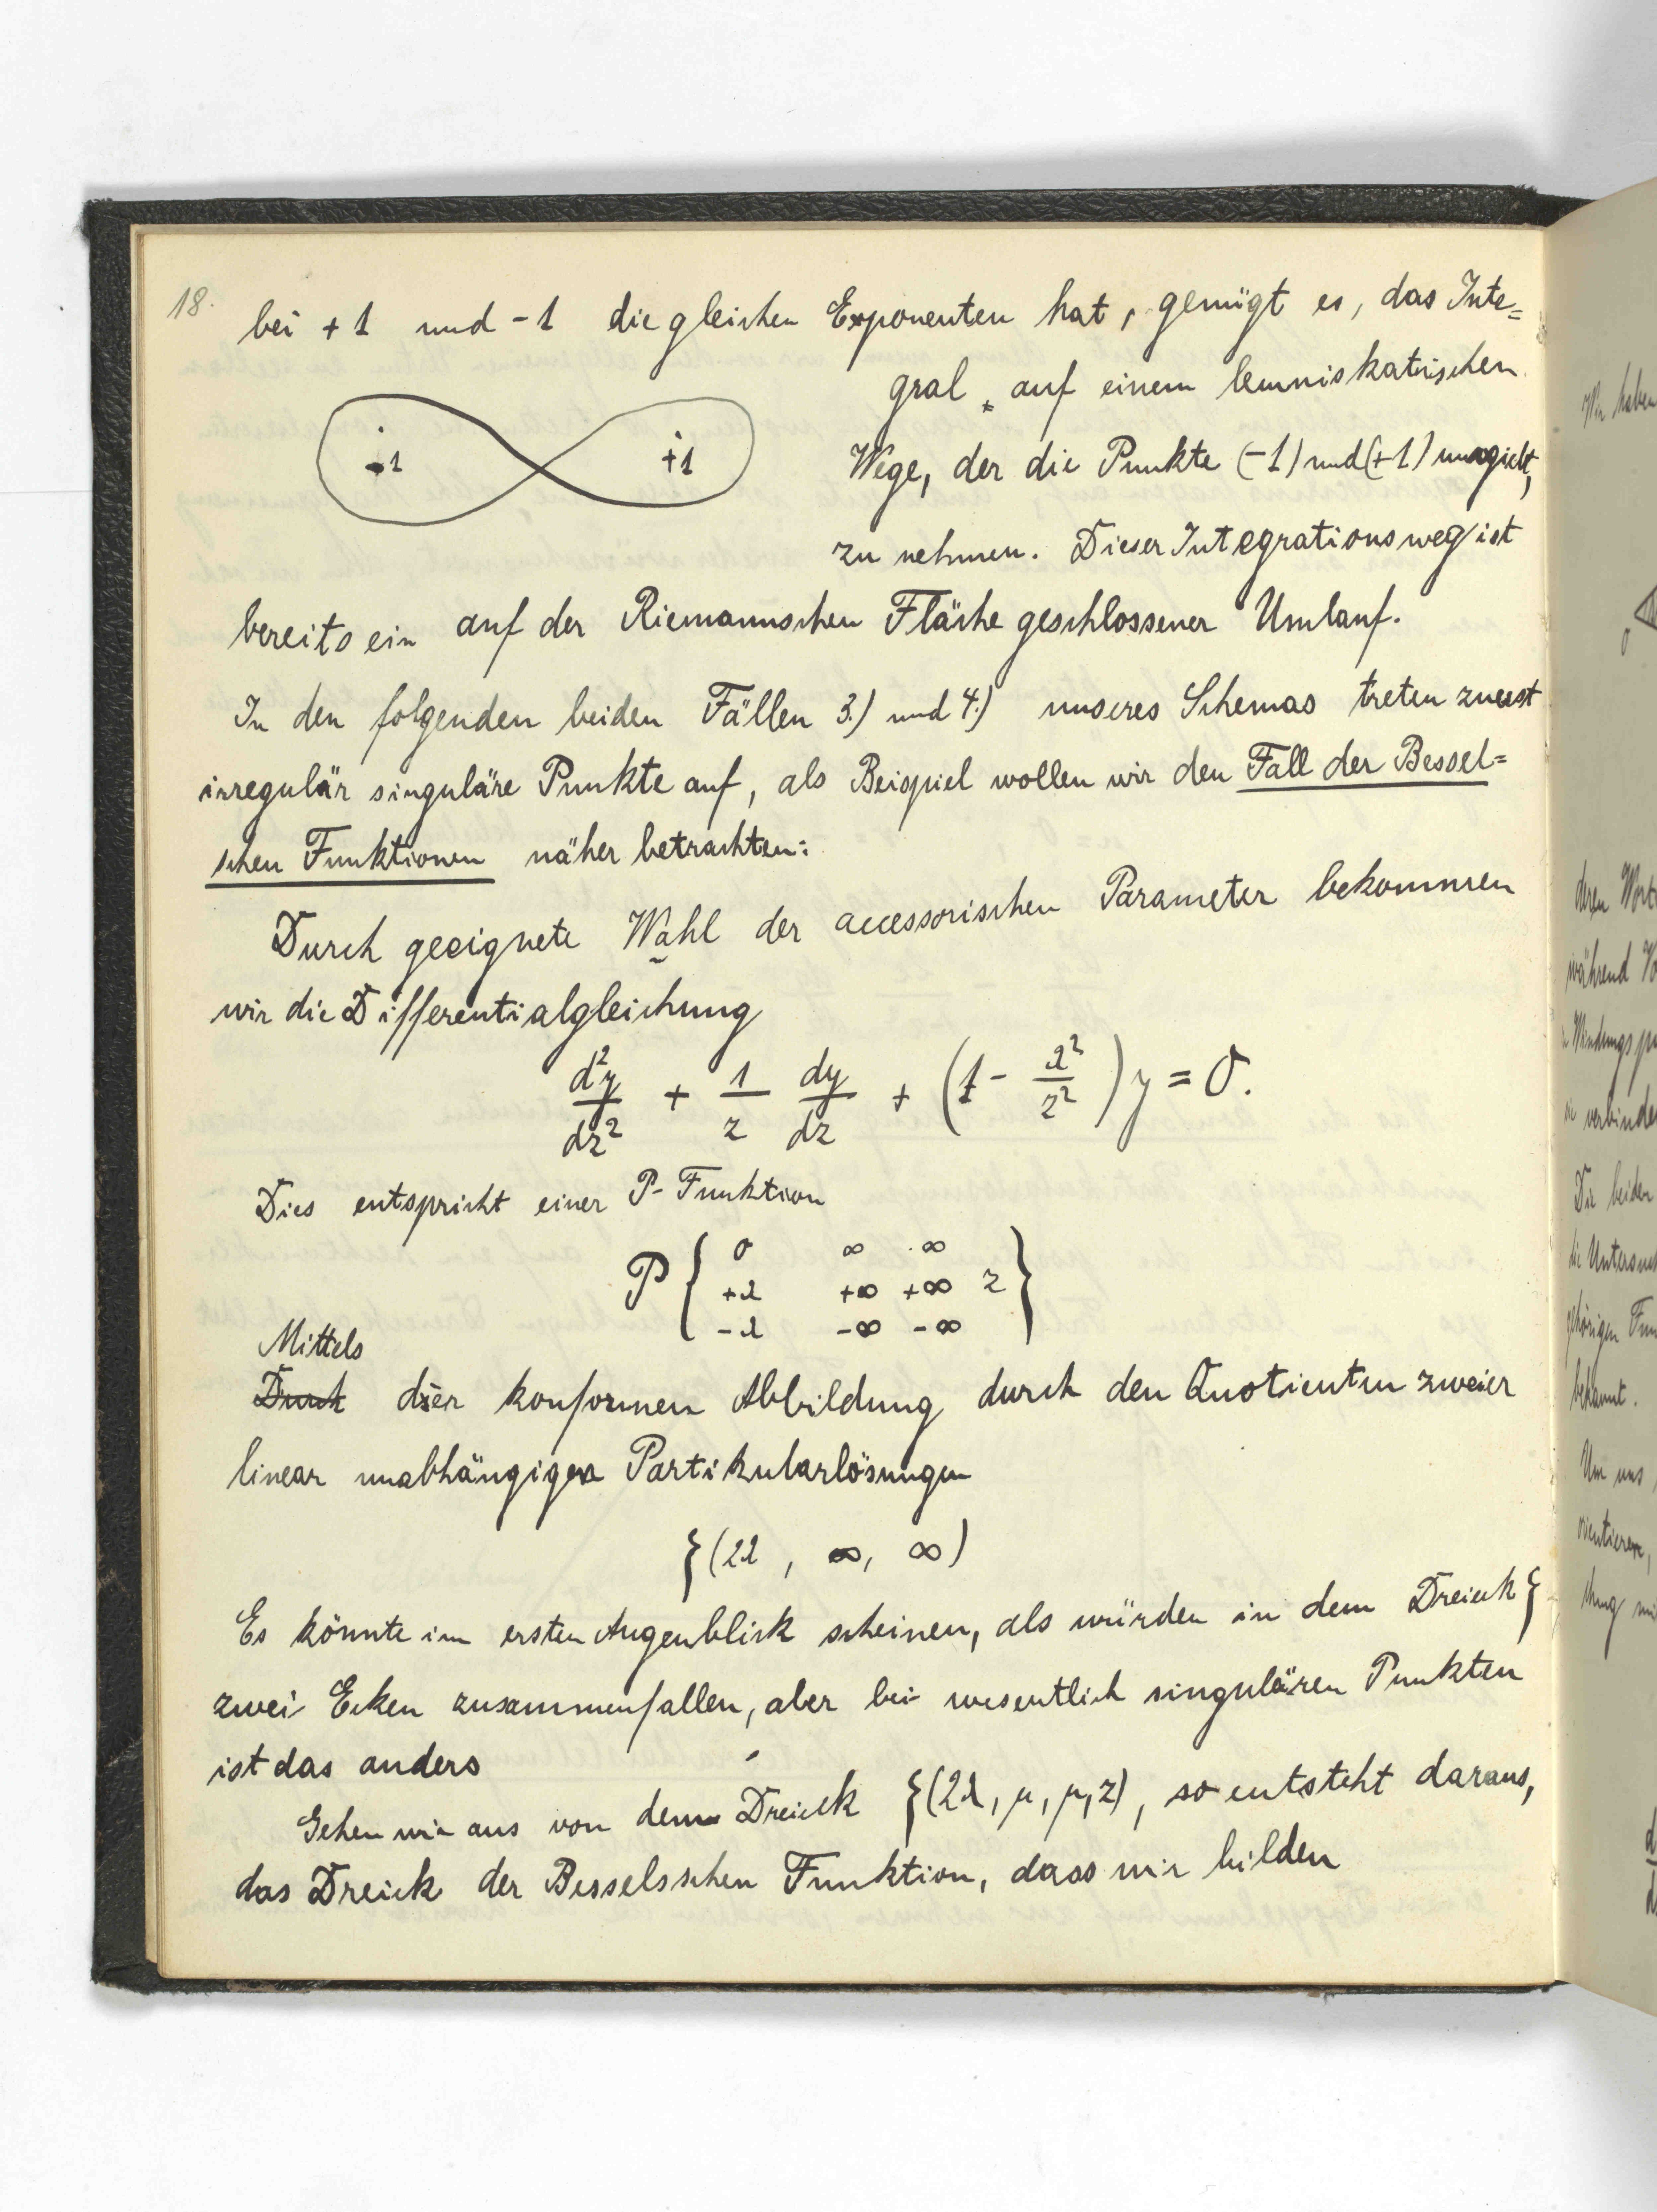 18.
bei +1 und -1 die gleichen Exponenten hat, genügt es, das Inte=
gral auf einem lemniskatischen
-1 +1
Wege, der die Punkte (-1) und (+1) umgiebt,
zu nehmen. Dieser Integrationsweg ist
bereits ein auf der Riemannschen Fläche geschlossener Umlauf.
In den folgenden beiden Fällen 3.) und 4.) unseres Schemas treten zuerst
irregulär singuläre Punkte auf, als Beispiel wollen wir den Fall der Bessel=
schen Funktionen näher betrachten:
Durch geeignete Wahl der accessorischen Parameter bekommen
wir die Differentialgleichung
d²y/dz² + 1/z dy/dz + (1 - λ²/z²) y = 0.
Dies entspricht einer P-Funktion
P { 0 ∞ ∞
+λ +∞ +∞ z }
-λ -∞ -∞
Mittels
Durch der konformen Abbildung durch den Quotienten zweier
linear unabhängiger Partikularlösungen
ζ(2λ, ∞, ∞)
Es könnte im ersten Augenblick scheinen, als würden in dem Dreieck ζ
zwei Ecken zusammenfallen, aber bei wesentlich singulären Punkten
ist das anders
Gehen wir aus von dem Dreieck ζ(2λ, μ, μ, z), so entsteht daraus,
das Dreick der Besselsschen Funktion, dass wir bilden
Wir haben
deren
während
verbinde
Die beiden
bekannt.
Um uns
orientieren,